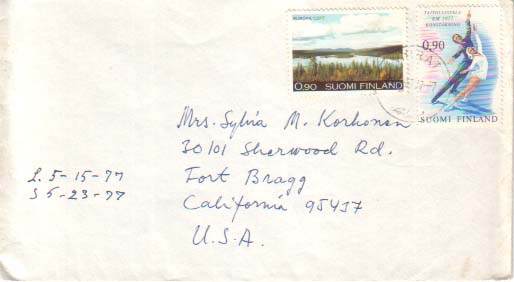 EUROPA CEPT
0.90 SUOMI FINLAND
TAITOLUISTELU
EM 1977
KONSTÅKNING
0,90
SUOMI FINLAND
Mrs. Sylvia M. Korhonen
30101 Sherwood Rd.
Fort Bragg
California 95437
U.S.A.
L. 5-15-77
S 5-23-77